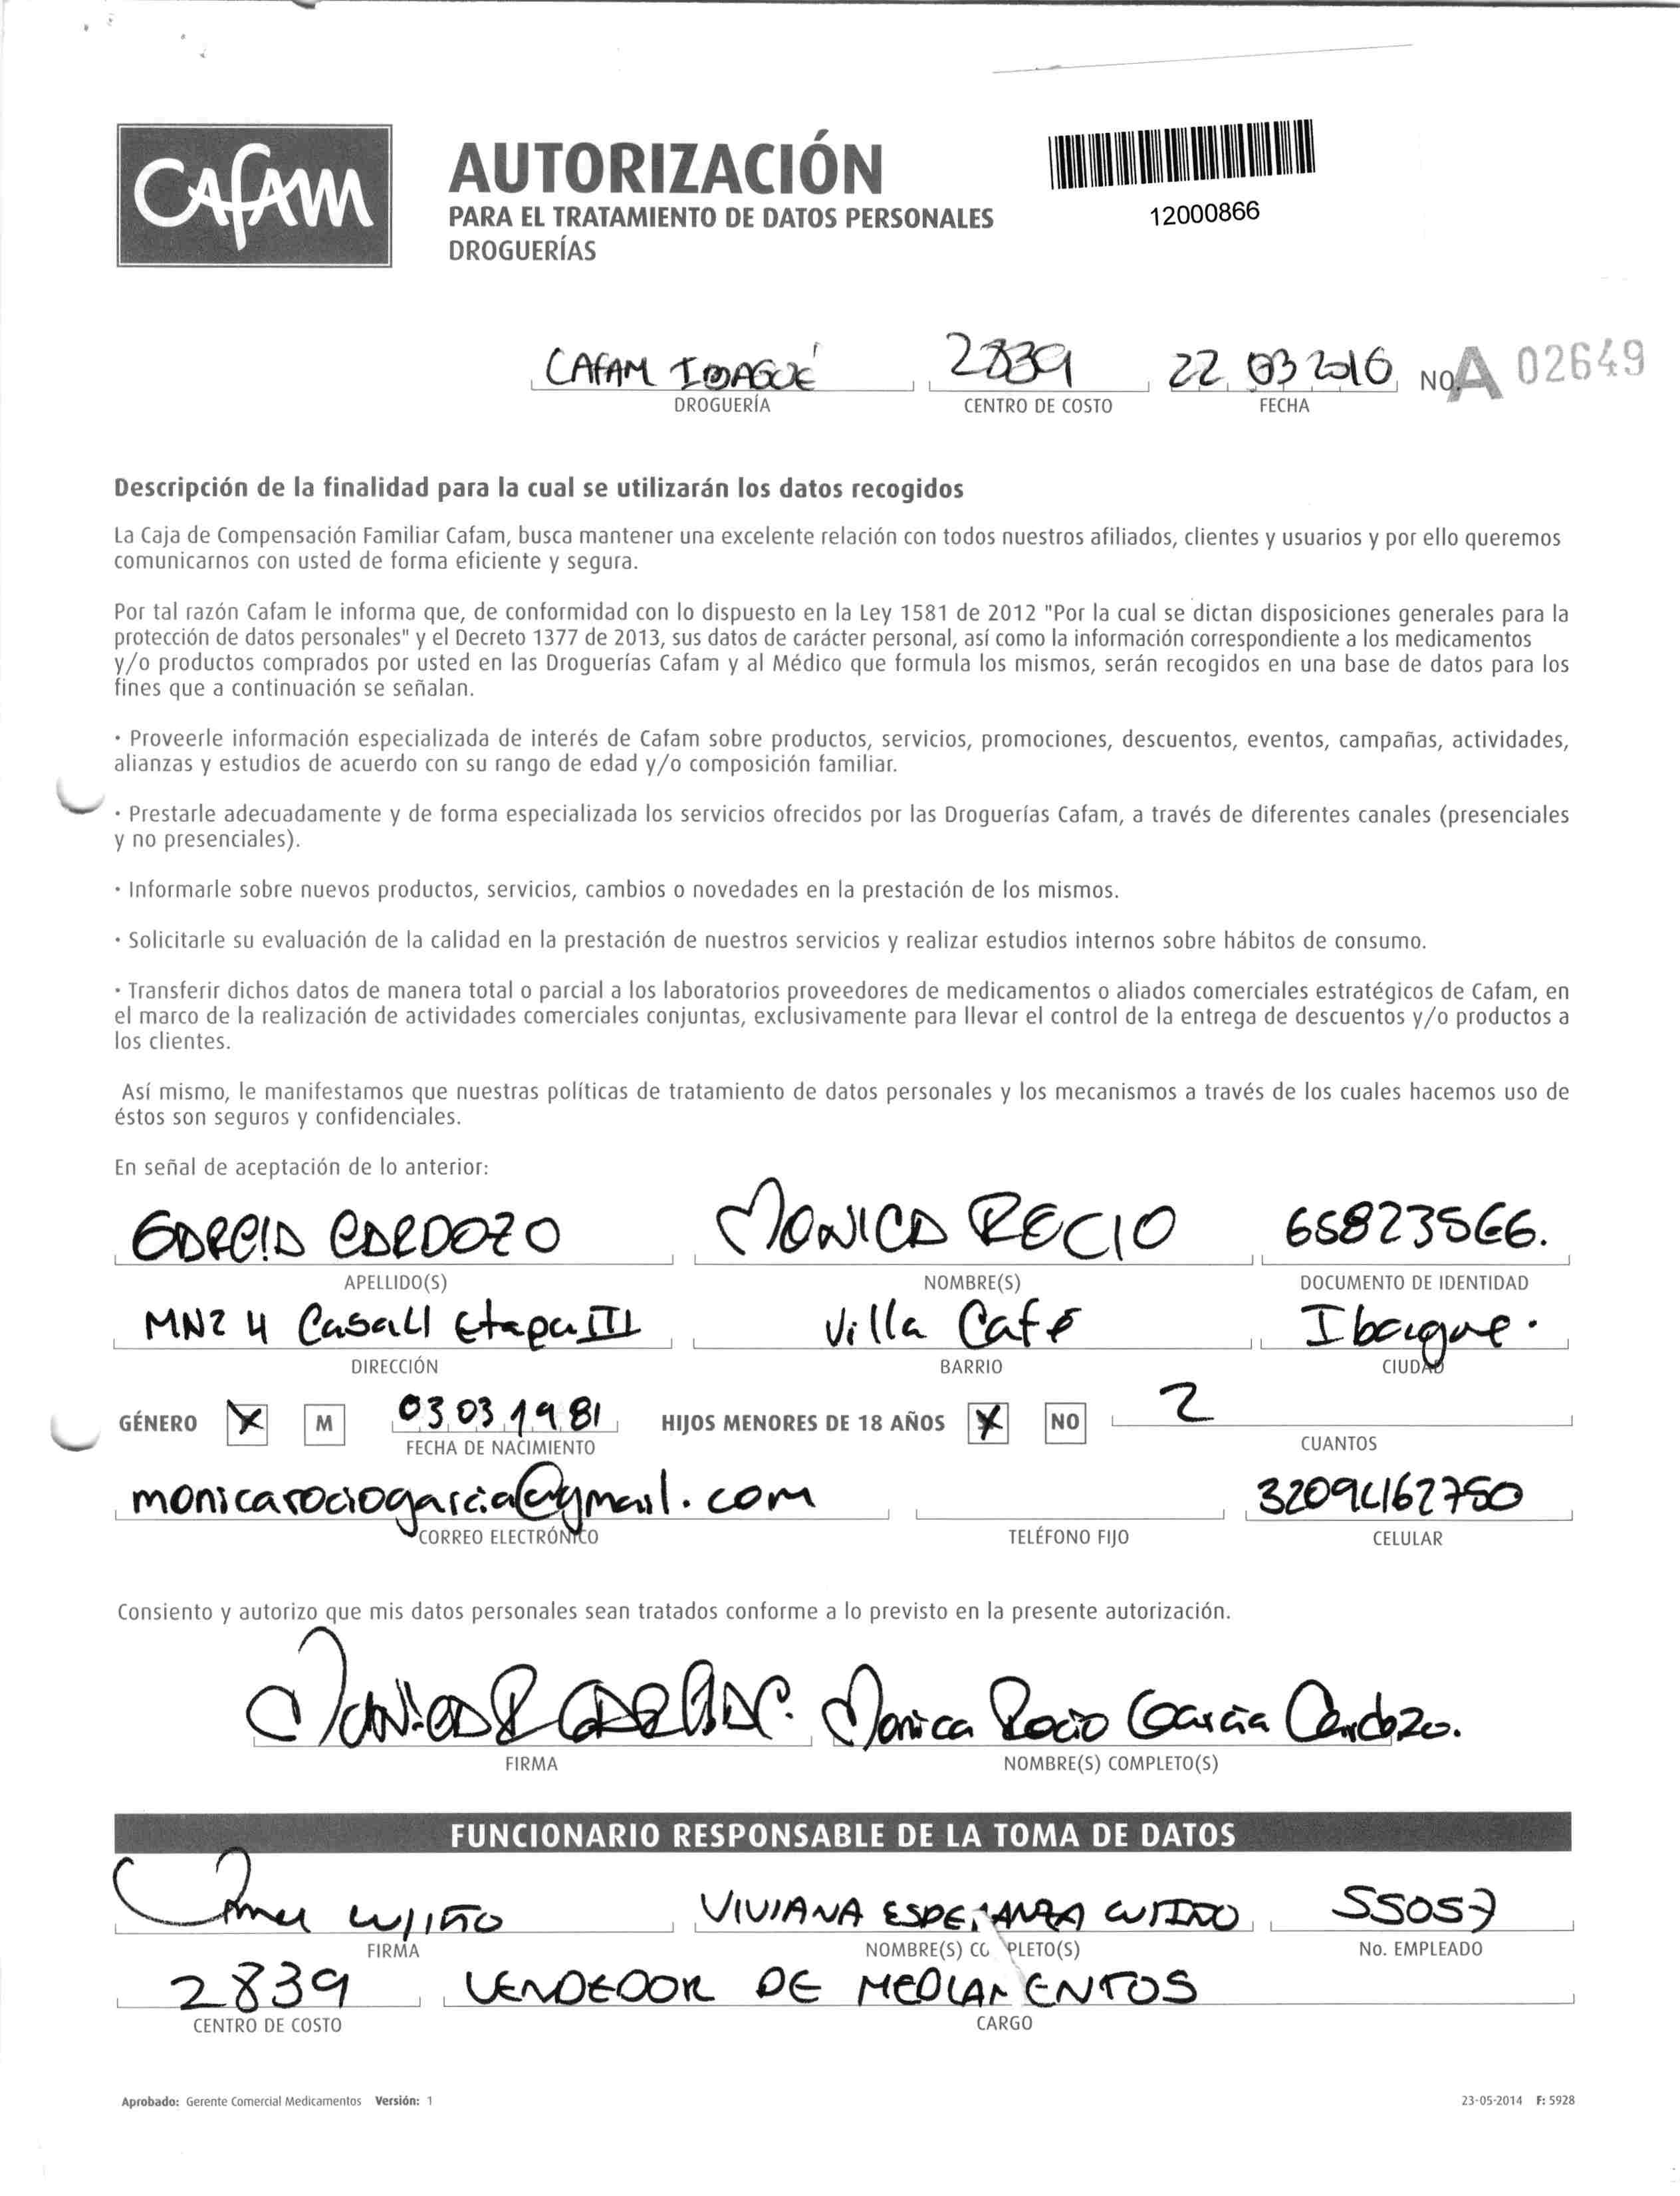 CAFAM
AUTORIZACIÓN
PARA EL TRATAMIENTO DE DATOS PERSONALES
DROGUERÍAS
12000866
CAFAM IBAGUÉ 2839 22 03 2016 No. A 02649
DROGUERÍA CENTRO DE COSTO FECHA
Descripción de la finalidad para la cual se utilizarán los datos recogidos
La Caja de Compensación Familiar Cafam, busca mantener una excelente relación con todos nuestros afiliados, clientes y usuarios y por ello queremos
comunicarnos con usted de forma eficiente y segura.
Por tal razón Cafam le informa que, de conformidad con lo dispuesto en la Ley 1581 de 2012 "Por la cual se dictan disposiciones generales para la
protección de datos personales" y el Decreto 1377 de 2013, sus datos de carácter personal, así como la información correspondiente a los medicamentos
y/o productos comprados por usted en las Droguerías Cafam y al Médico que formula los mismos, serán recogidos en una base de datos para los
fines que a continuación se señalan.
· Proveerle información especializada de interés de Cafam sobre productos, servicios, promociones, descuentos, eventos, campañas, actividades,
alianzas y estudios de acuerdo con su rango de edad y/o composición familiar.
· Prestarle adecuadamente y de forma especializada los servicios ofrecidos por las Droguerías Cafam, a través de diferentes canales (presenciales
y no presenciales).
· Informarle sobre nuevos productos, servicios, cambios o novedades en la prestación de los mismos.
· Solicitarle su evaluación de la calidad en la prestación de nuestros servicios y realizar estudios internos sobre hábitos de consumo.
· Transferir dichos datos de manera total o parcial a los laboratorios proveedores de medicamentos o aliados comerciales estratégicos de Cafam, en
el marco de la realización de actividades comerciales conjuntas, exclusivamente para llevar el control de la entrega de descuentos y/o productos a
los clientes.
Así mismo, le manifestamos que nuestras políticas de tratamiento de datos personales y los mecanismos a través de los cuales hacemos uso de
éstos son seguros y confidenciales.
En señal de aceptación de lo anterior:
GARCIA CARDOZO MONICA ROCIO 65823566.
APELLIDO(S) NOMBRE(S) DOCUMENTO DE IDENTIDAD
MNZ 4 Casa 11 Etapa III Villa Café Ibague.
DIRECCIÓN BARRIO CIUDAD
GÉNERO X M 03 03 1981 HIJOS MENORES DE 18 AÑOS X NO 2
FECHA DE NACIMIENTO CUANTOS
monicarociogarcia@gmail.com
CORREO ELECTRÓNICO TELÉFONO FIJO CELULAR
Consiento y autorizo que mis datos personales sean tratados conforme a lo previsto en la presente autorización.
MONICA R GARCIA C. Monica Rocio Garcia Cardozo.
FIRMA NOMBRE(S) COMPLETO(S)
FUNCIONARIO RESPONSABLE DE LA TOMA DE DATOS
VIVIANA ESPERANZA CUTIÑO 55057
FIRMA NOMBRE(S) COMPLETO(S) No. EMPLEADO
2839 VENDEDOR DE MEDICAMENTOS
CENTRO DE COSTO CARGO
Aprobado: Gerente Comercial Medicamentos Versión: 1 23-05-2014 F: 5928